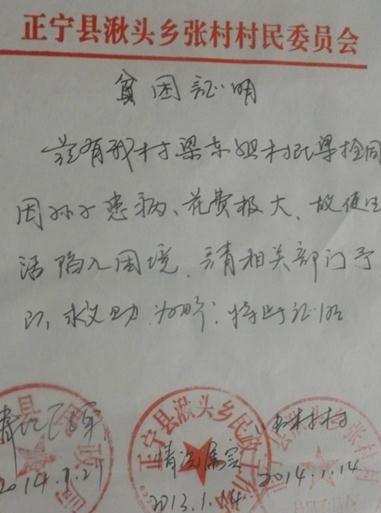 正宁县湫头乡张村村民委员会
贫困证明
兹有我村梁东组村民梁拴同
因孙子患病、花费极大、故使生
活陷入困境、请相关部门予
以救助为盼. 特此证明
2014.1.27
情况属实
2013.1.14
2014.1.14